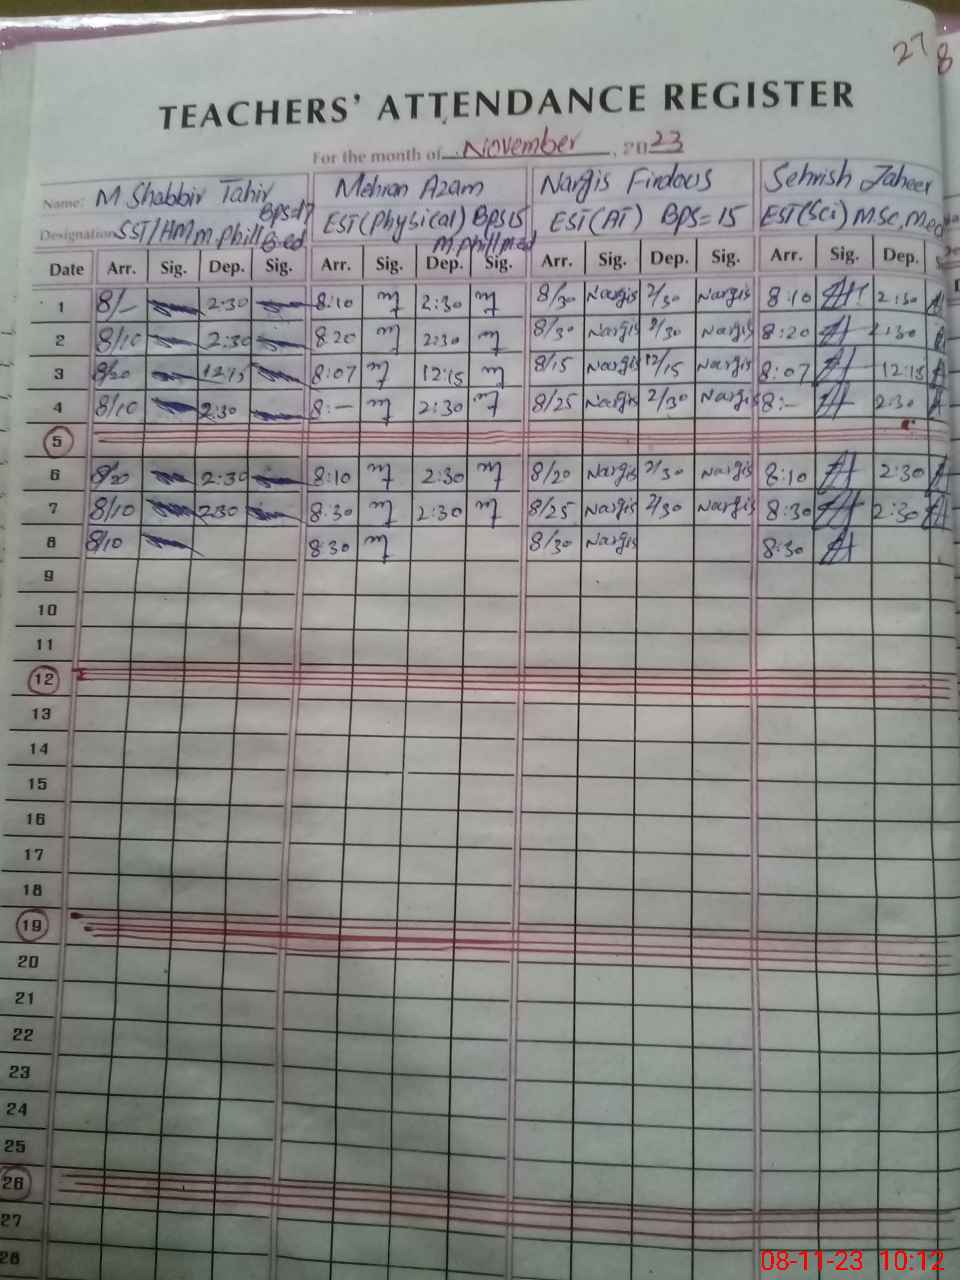 27
8
TEACHERS' ATTENDANCE REGISTER
For the month of November, 2023
Name: M Shabbir Tahir Mehran Azam Nargis Firdous Sehrish Zaheer
Bps=17
Designation SST/HM m.phill B-ed EST(Physical) Bps 15 EST(AT) BPS=15 EST(Sci) MSc, Med
m phill m.ed
Date Arr. Sig. Dep. Sig. Arr. Sig. Dep. Sig. Arr. Sig. Dep. Sig. Arr. Sig. Dep.
1 8/- 2:30 8:10 2:30 8/30 Nargis 2/30 Nargis 8:10 2:30
2 8/10 2:30 8:20 2:30 8/30 Nargis 2/30 Nargis 8:20 2:30
3 8/20 12:15 8:07 12:15 8/15 Nargis 12/15 Nargis 8:07 12:15
4 8/10 2:30 8:- 2:30 8/25 Nargis 2/30 Nargis 8:- 2:30
5
6 8/20 2:30 8:10 2:30 8/20 Nargis 2/30 Nargis 8:10 2:30
7 8/10 2:30 8:30 2:30 8/25 Nargis 2/30 Nargis 8:30 2:30
8 8/10 8:30 8/30 Nargis 8:30
9
10
11
12
13
14
15
16
17
18
19
20
21
22
23
24
25
26
27
28
08-11-23 10:12